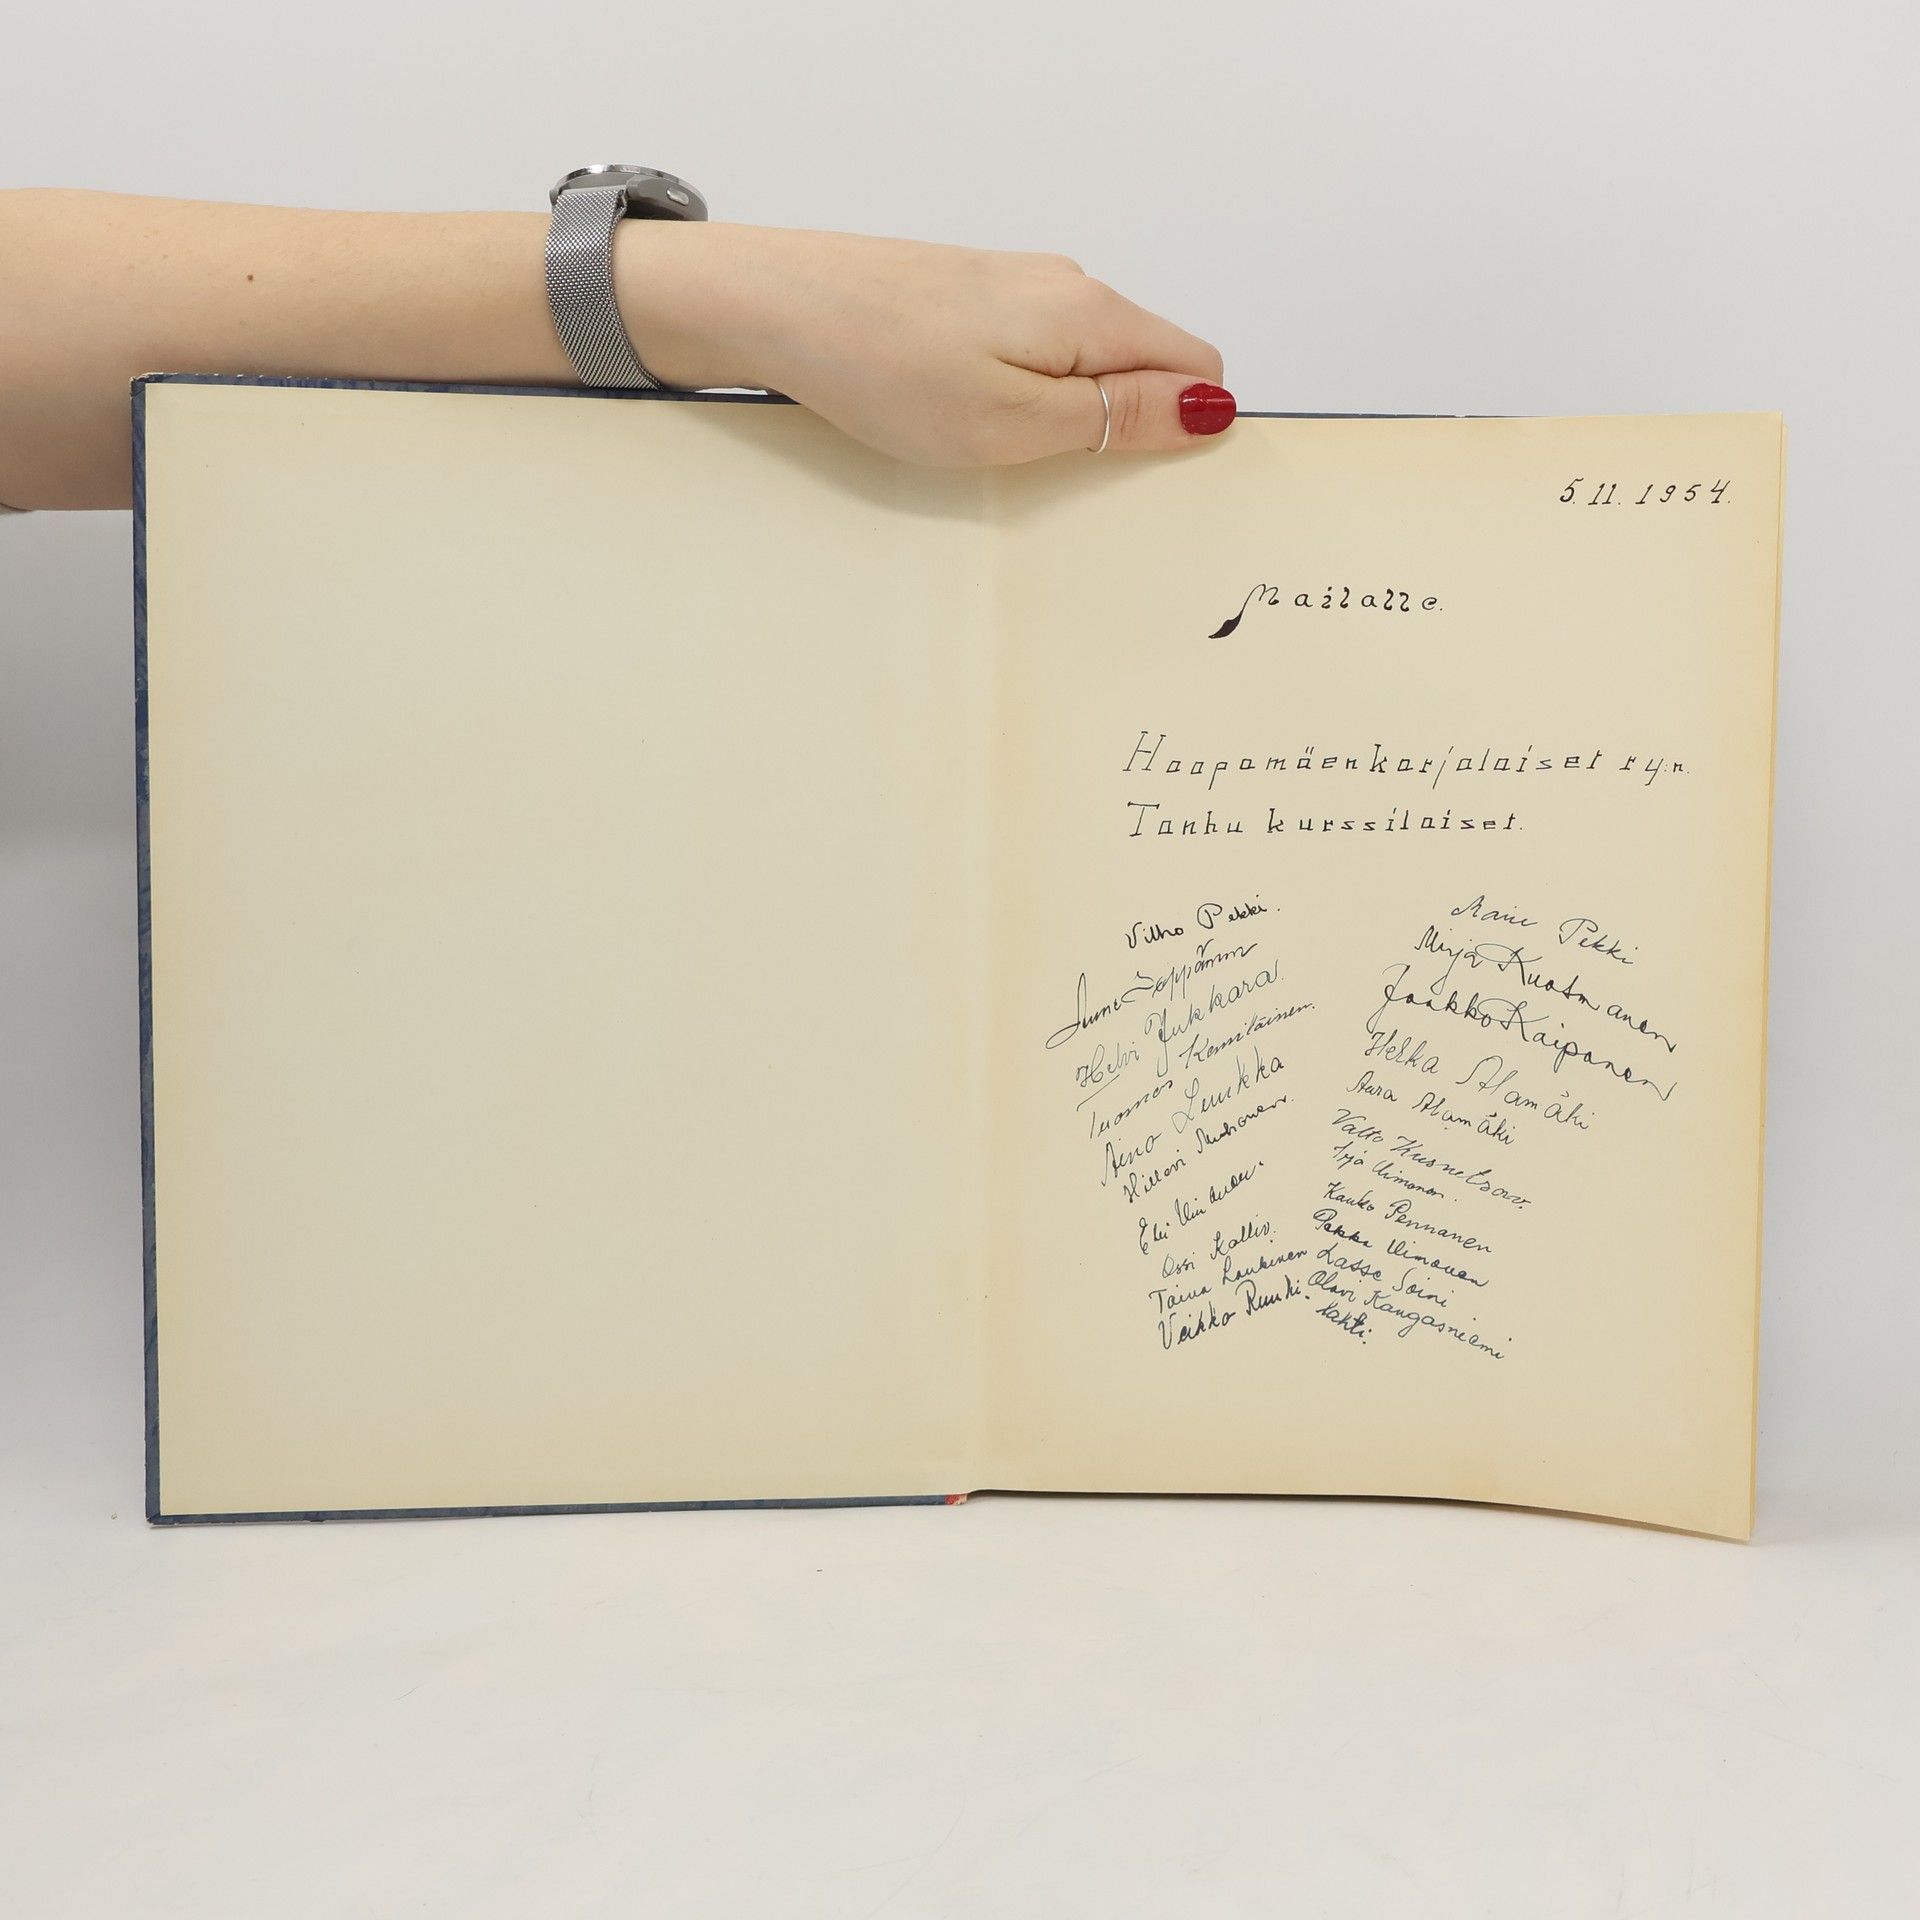 5.11.1954.
Mailalle.
Haapamäenkarjalaiset ry:n.
Tanhu kurssilaiset.
Vilho Pekki.
Helvi Jukkara.
Tuomas Kemiläinen.
Aino Luukka
Hillevi
Ossi Kallio.
Taimo Laukinen
Veikko Ruuhi.
Maire Pekki
Mirja Kuosmanen
Jaakko Kaipanen
Helka Alamäki
Aura Alamäki
Valto Kusnetsow.
Irja Uimonen.
Kauko Pennanen
Pekka Uimonen
Lasse Soini
Olavi Kangasniemi
Lahti.